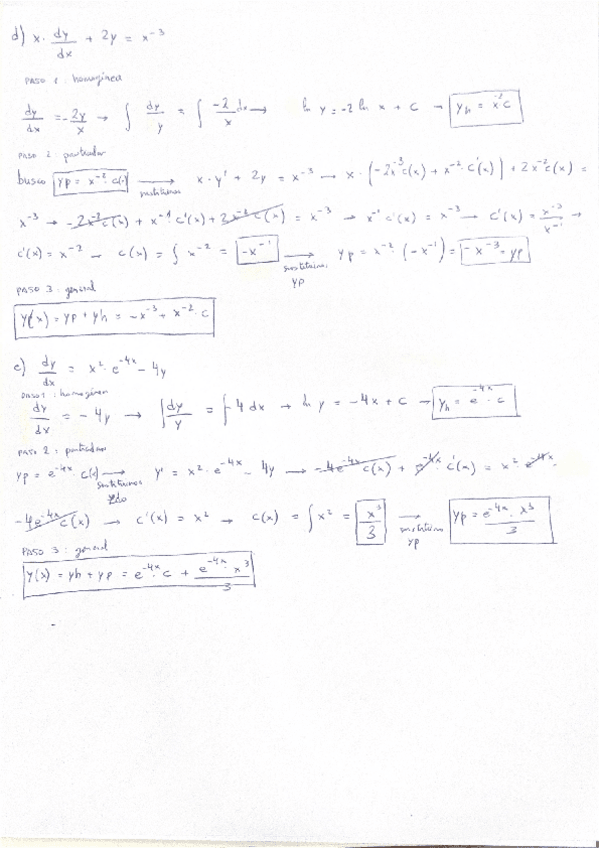 d) x · dy/dx + 2y = x⁻³
PASO 1: homogénea
dy/dx = -2y/x → ∫ dy/y = ∫ -2/x dx → ln y = -2 ln x + c → yh = x⁻² · c
PASO 2: particular
busco yp = x⁻² · c(x) → sustituimos x · y' + 2y = x⁻³ → x · (-2x⁻³ c(x) + x⁻² · c'(x)) + 2x⁻² c(x) =
x⁻³ → -2x⁻² c(x) + x⁻¹ c'(x) + 2x⁻² c(x) = x⁻³ → x⁻¹ c'(x) = x⁻³ → c'(x) = x⁻³/x⁻¹ →
c'(x) = x⁻² → c(x) = ∫ x⁻² = -x⁻¹ → sustituimos yp yp = x⁻² · (-x⁻¹) = -x⁻³ = yp
PASO 3: general
y(x) = yp + yh = -x⁻³ + x⁻² · c
e) dy/dx = x² · e⁻⁴ˣ - 4y
PASO 1: homogénea
dy/dx = -4y → ∫ dy/y = ∫ -4 dx → ln y = -4x + c → yh = e⁻⁴ˣ · c
PASO 2: particular
yp = e⁻⁴ˣ c(x) → sustituimos y' = x² · e⁻⁴ˣ - 4y → -4e⁻⁴ˣ c(x) + e⁻⁴ˣ · c'(x) = x² · e⁻⁴ˣ
-4e⁻⁴ˣ c(x) → c'(x) = x² → c(x) = ∫ x² = x³/3 → sustituimos yp yp = e⁻⁴ˣ · x³/3
PASO 3: general
y(x) = yh + yp = e⁻⁴ˣ · c + e⁻⁴ˣ · x³/3